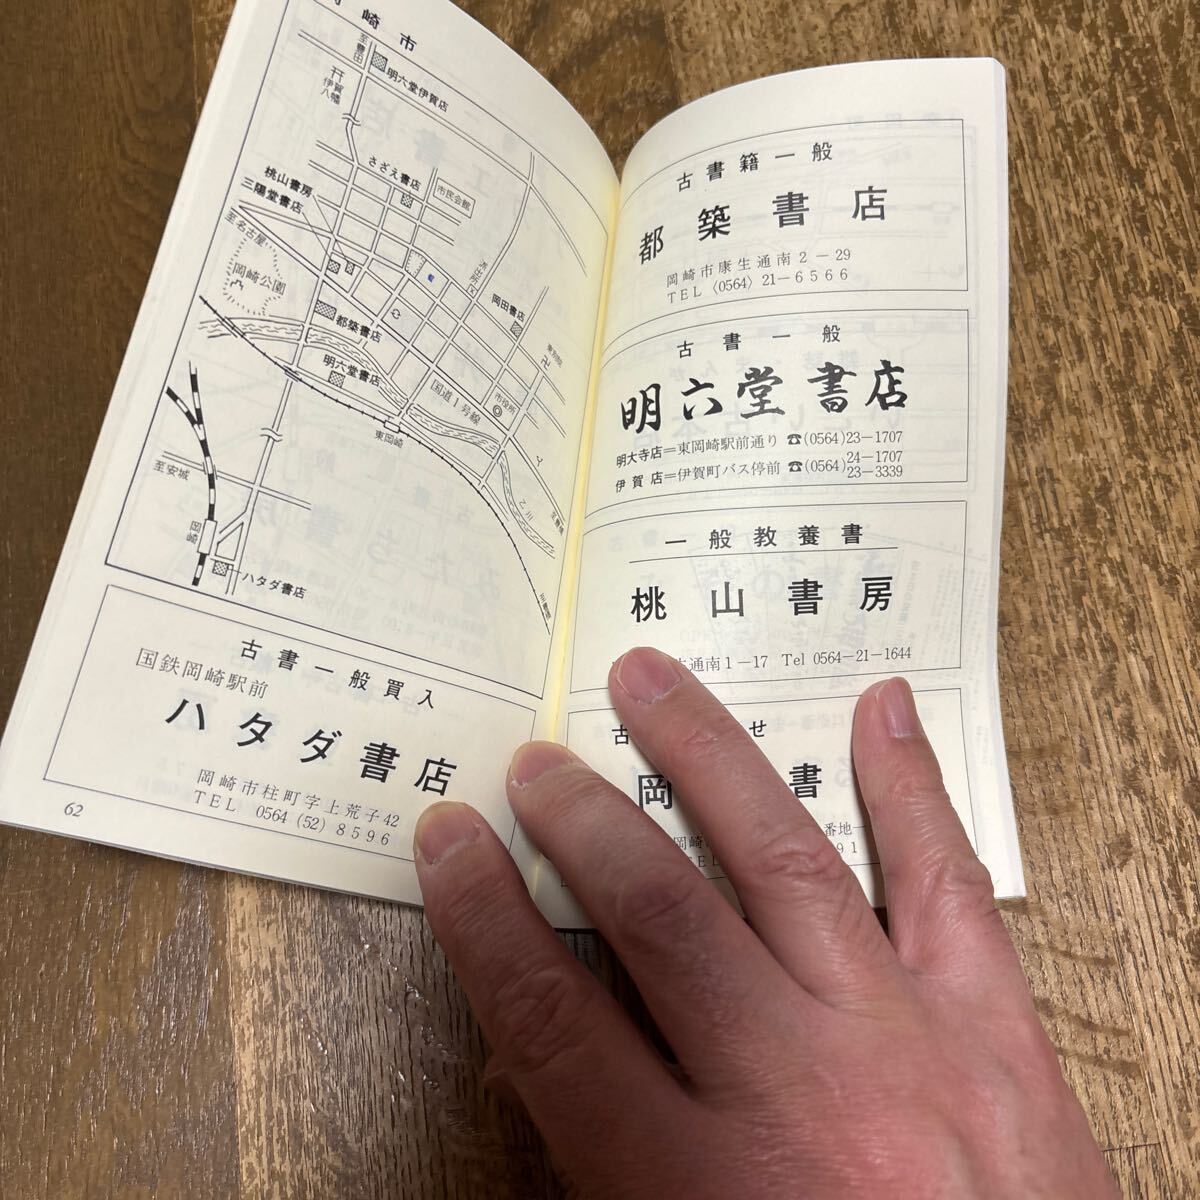 崎市
至豊田
明六堂伊賀店
伊賀八幡
さざえ書店
市民会館
桃山書房
三陽堂書店
至名古屋
岡崎公園
岡田書店
都築書店
明六堂書店
東別院
国道1号線
市役所
東岡崎
乙川
至安城
岡崎
ハタダ書店
古書一般買入
国鉄岡崎駅前
ハタダ書店
岡崎市柱町字上荒子42
TEL 0564(52)8596
62
古書籍一般
都築書店
岡崎市康生通南2-29
TEL〈0564〉21-6566
古書一般
明六堂書店
明大寺店=東岡崎駅前通り ☎(0564)23-1707
伊賀店=伊賀町バス停前 ☎(0564)24-1707
23-3339
一般教養書
桃山書房
生通南1-17 Tel 0564-21-1644
古 せ
岡 書
岡崎 番地
TEL 91